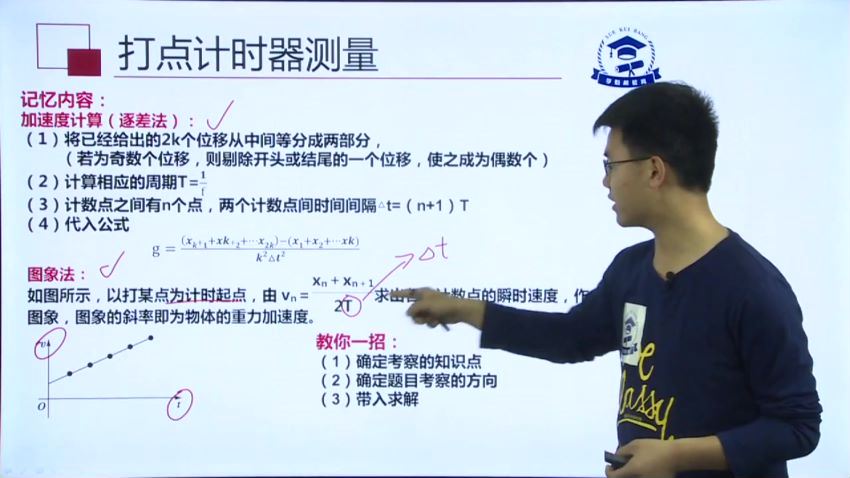 打点计时器测量
XUE KUI BANG
记忆内容：
加速度计算（逐差法）：
（1）将已经给出的2k个位移从中间等分成两部分，
（若为奇数个位移，则剔除开头或结尾的一个位移，使之成为偶数个）
（2）计算相应的周期T=1/f
（3）计数点之间有n个点，两个计数点间时间间隔△t=（n+1）T
（4）代入公式
g = (x_{k+1}+xk_{+2}+⋯x_{2k})−(x_1+x_2+⋯xk) / k²△t²
图象法：
△t
如图所示，以打某点为计时起点，由 vₙ = xₙ + xₙ₊₁ / 2T 求出 计数点的瞬时速度，作
图象，图象的斜率即为物体的重力加速度。
v
O
t
教你一招：
（1）确定考察的知识点
（2）确定题目考察的方向
（3）带入求解
classy